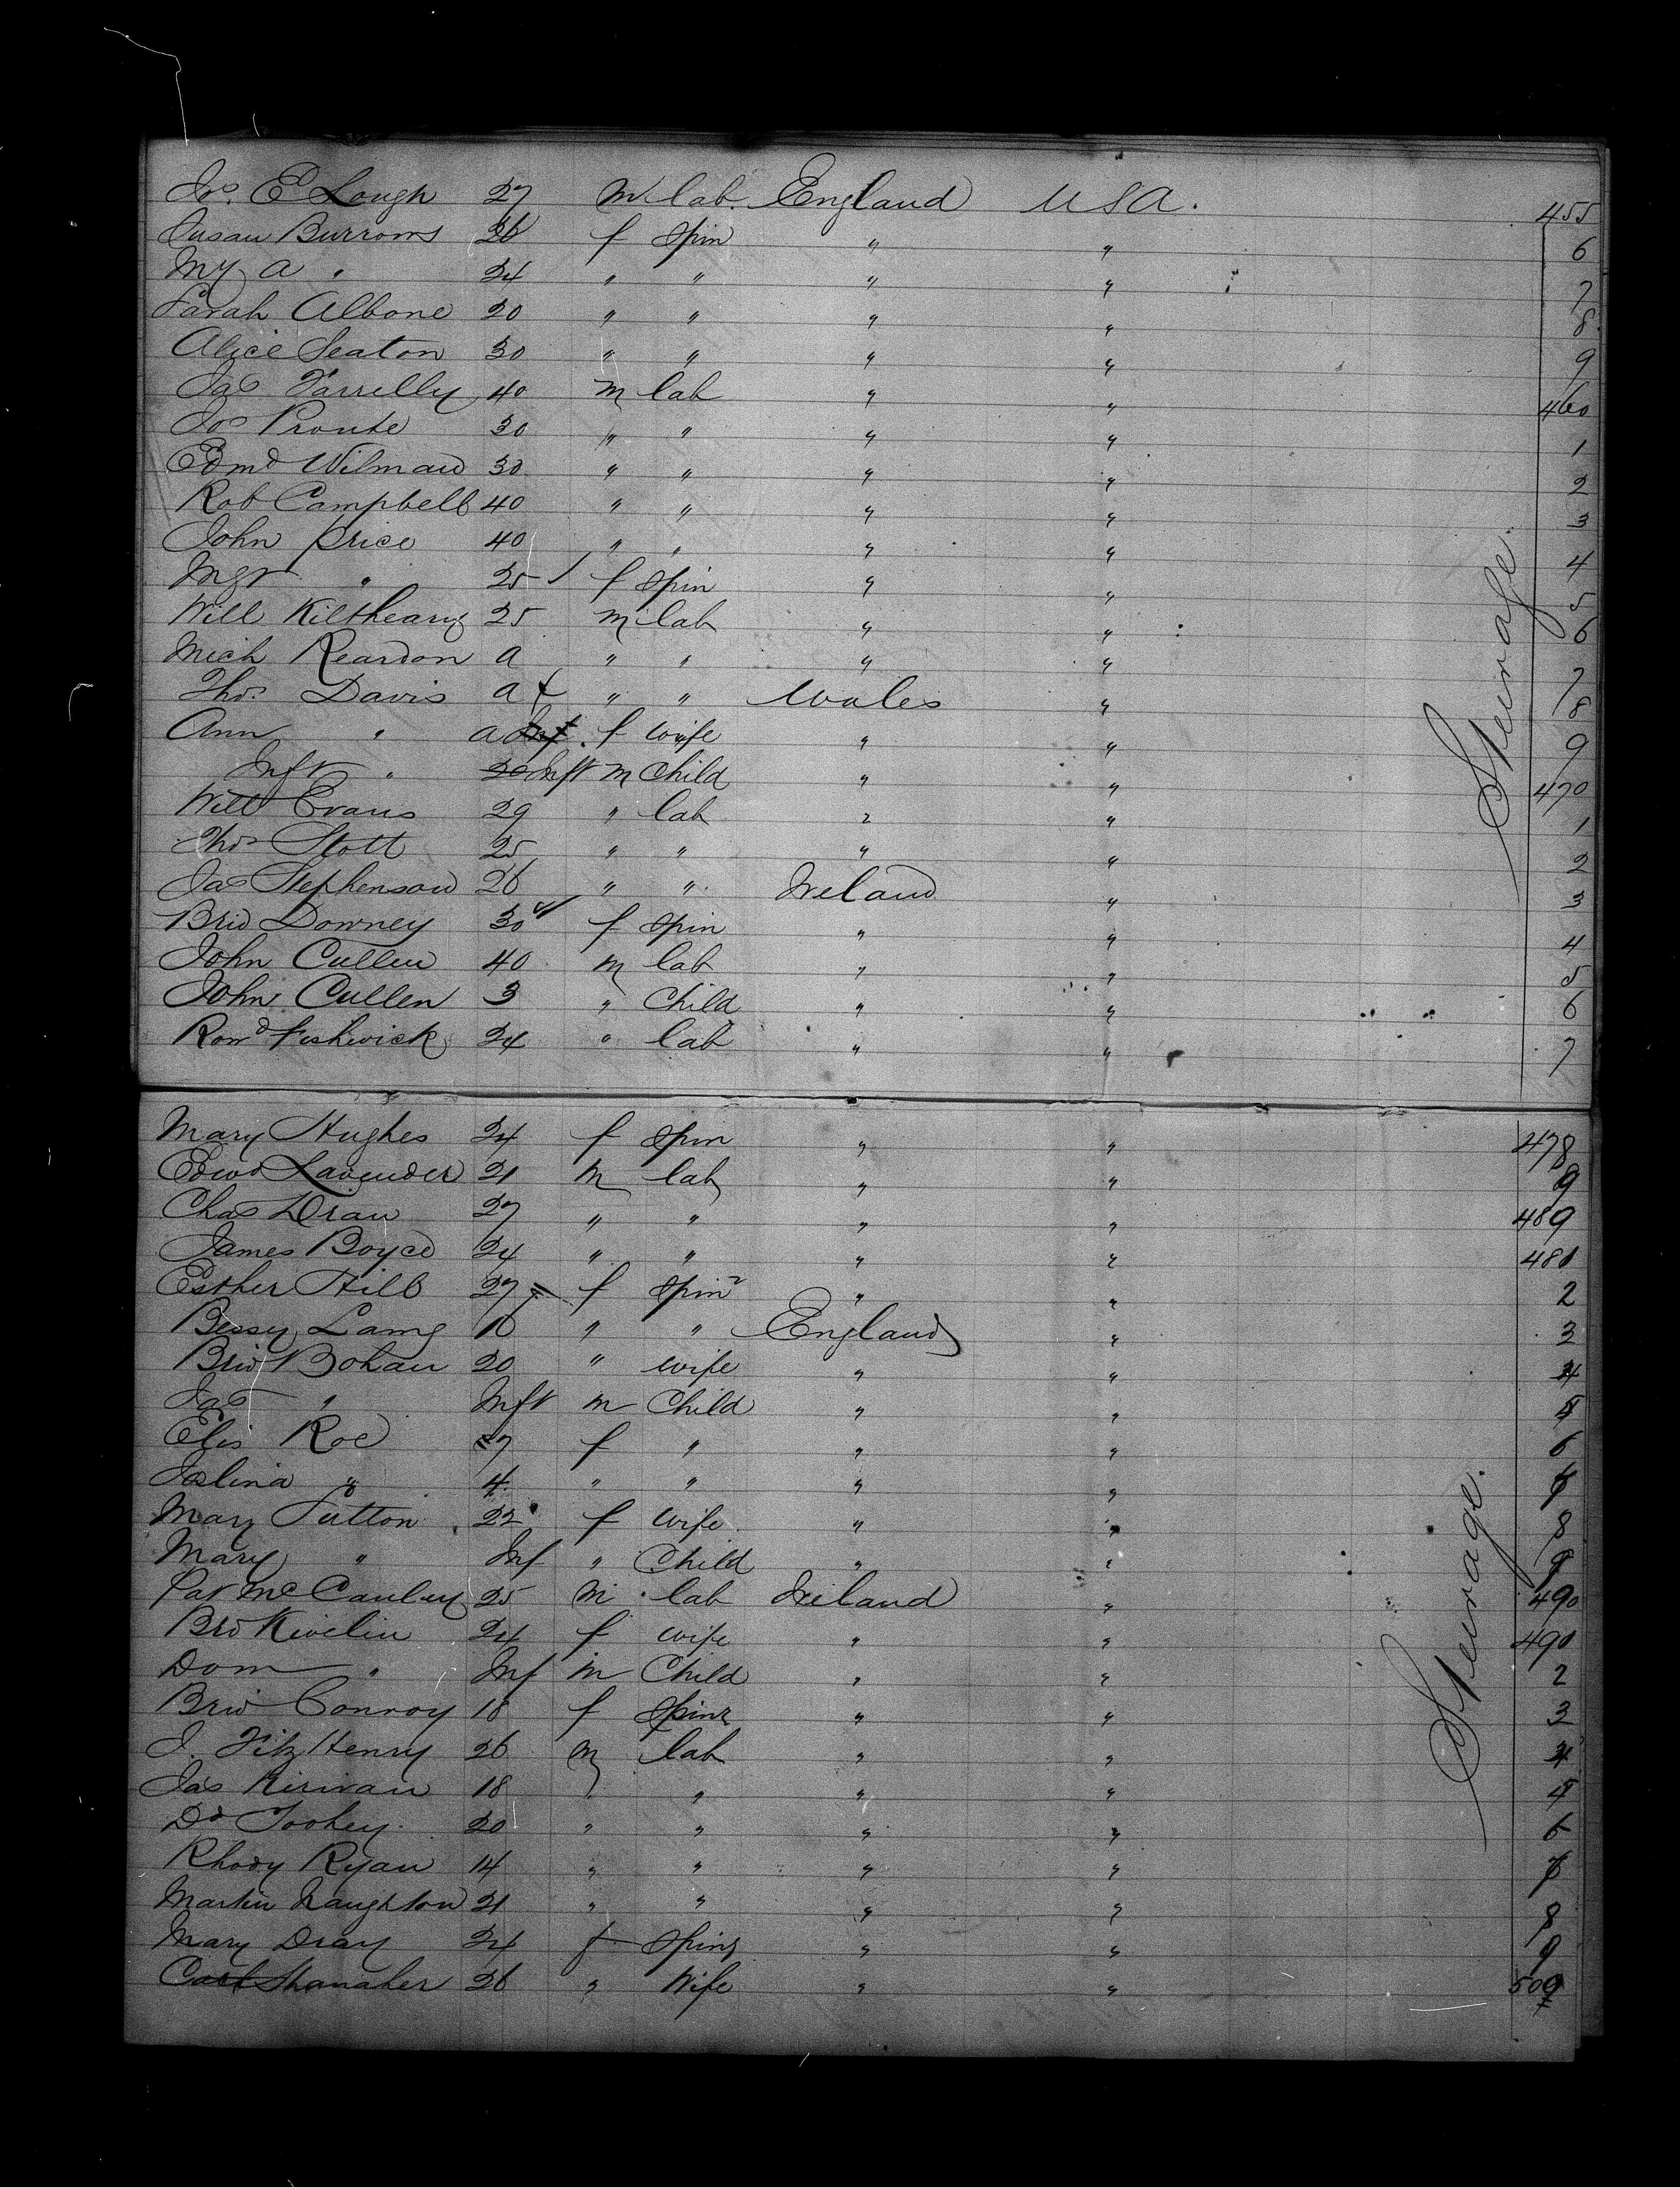 Jos. E Lough 27 m lab. England USA. 455
Susan Burrows 26 f Spin " " 6
My A " 24 " " " " 7
Sarah Albone 20 " " " " 8
Alice Seaton 30 " " " " 9
Jas Farrelly 40 m lab " " 460
Jos Proute 30 " " " " 1
Edmd Wilman 30 " " " " 2
Rob Campbell 40 " " " " 3
John Price 40 " " " " 4
Mgt " 25 f Spin " " 5
Will 25 m lab " " 6
Mich Reardon a " " " " 7
Thos. Davis a " " Wales " 8
Ann " a f wife " " 9
Inft " Inft m Child " " 470
Will Evans 29 " lab " " 1
Thos Stott 25 " " " " 2
Jas Stephenson 26 " " Ireland " 3
Brid Downey 30 f Spin " " 4
John Cullen 40 m lab " " 5
John Cullen 3 " Child " " 6
Fishwick 24 " lab " " 7
Steerage.
Mary Hughes 24 f Spin " " 478
Edwd Lavender 21 m lab " " 9
Chas Dran 27 " " " " 489
James Boyce 24 " " " " 481
Esther Hill 27 f Spin " " 2
Bessy Lamg 10 " " England " 3
Brid Bohan 20 " wife " " 4
Jas " Inft m Child " " 5
Elis Roe 7 f " " " 6
" 4 " " " " 7
Mary Sutton 22 f Wife " " 8
Mary " Inf " Child " " 9
Pat McCauley 25 m lab Ireland " 490
Brd Kivelin 24 f wife " " 491
Dom " Inf m Child " " 2
Brid Conroy 18 f Spinr " " 3
J. Fitz Henry 26 m lab " " 4
Jas Kirivan 18 " " " " 5
Dd Toohey 20 " " " " 6
Rhody Ryan 14 " " " " 7
Martin Naughton 21 " " " " 8
Mary Dray 24 f Spinr " " 9
Cath Shanaher 26 " Wife " " 500
Steerage.